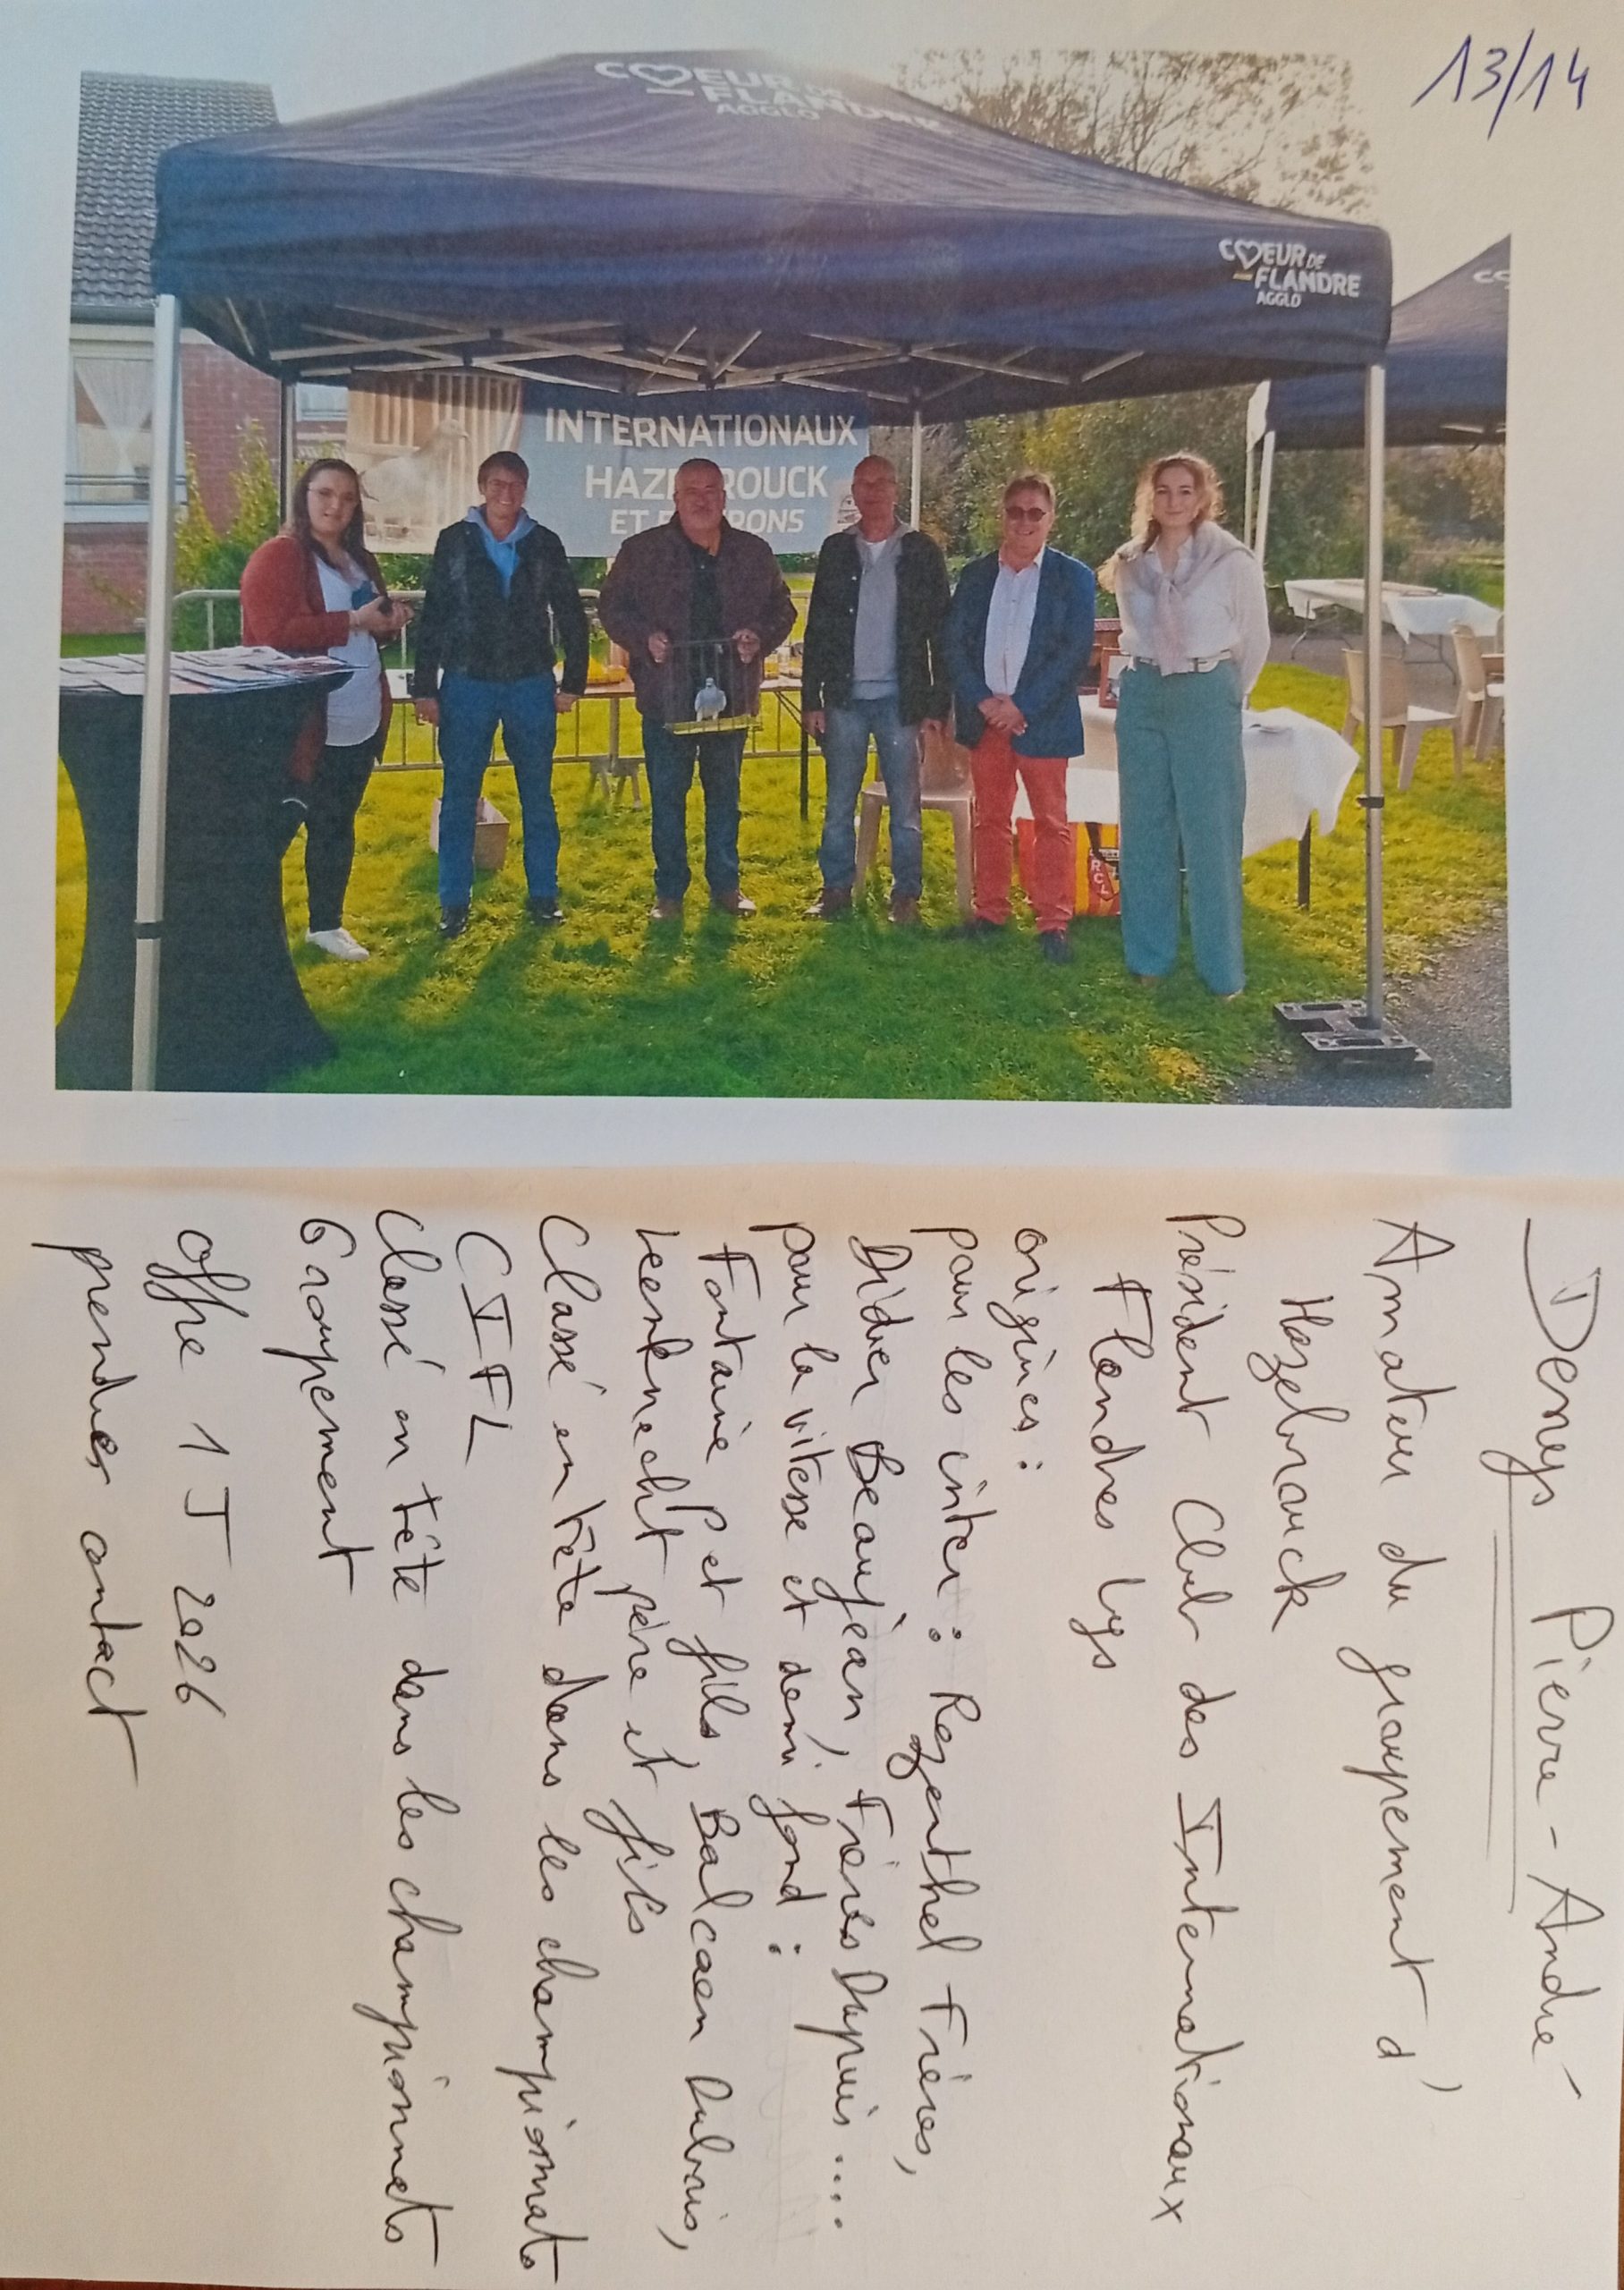 13/14
CŒUR DE
FLANDRE
AGGLO
CŒUR DE
FLANDRE
AGGLO
INTERNATIONAUX
HAZEBROUCK
ET ENVIRONS
RCL
Denys Pierre-André
Amateur du groupement d'
Hazebrouck
Président Club des Internationaux
Flandres Lys
origines :
pour les inter : Regenthel Frères,
Didier Beaujean, Frères Dupuis....
pour la vitesse et demi fond :
Fontaine P et fils, Balcaen Dubois,
père et fils
Classé en tête dans les championnats
CIFL
Classé en tête dans les championnats
Groupement
offre 1 J 2026
prendre contact